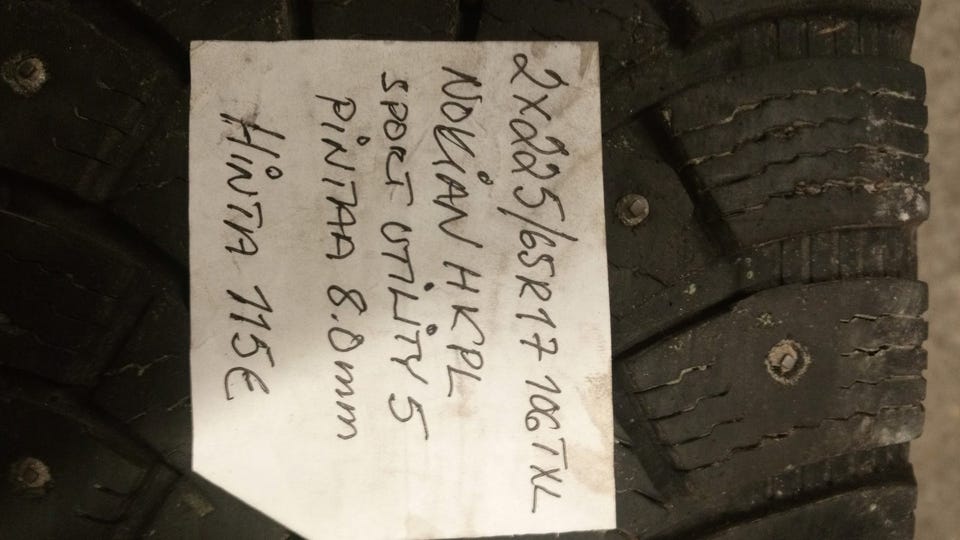 2x225/65R17 106TXL
NOKIAN HKPL
SPORT UTILITY 5
PINTAA 8.0mm
HINTA 115€